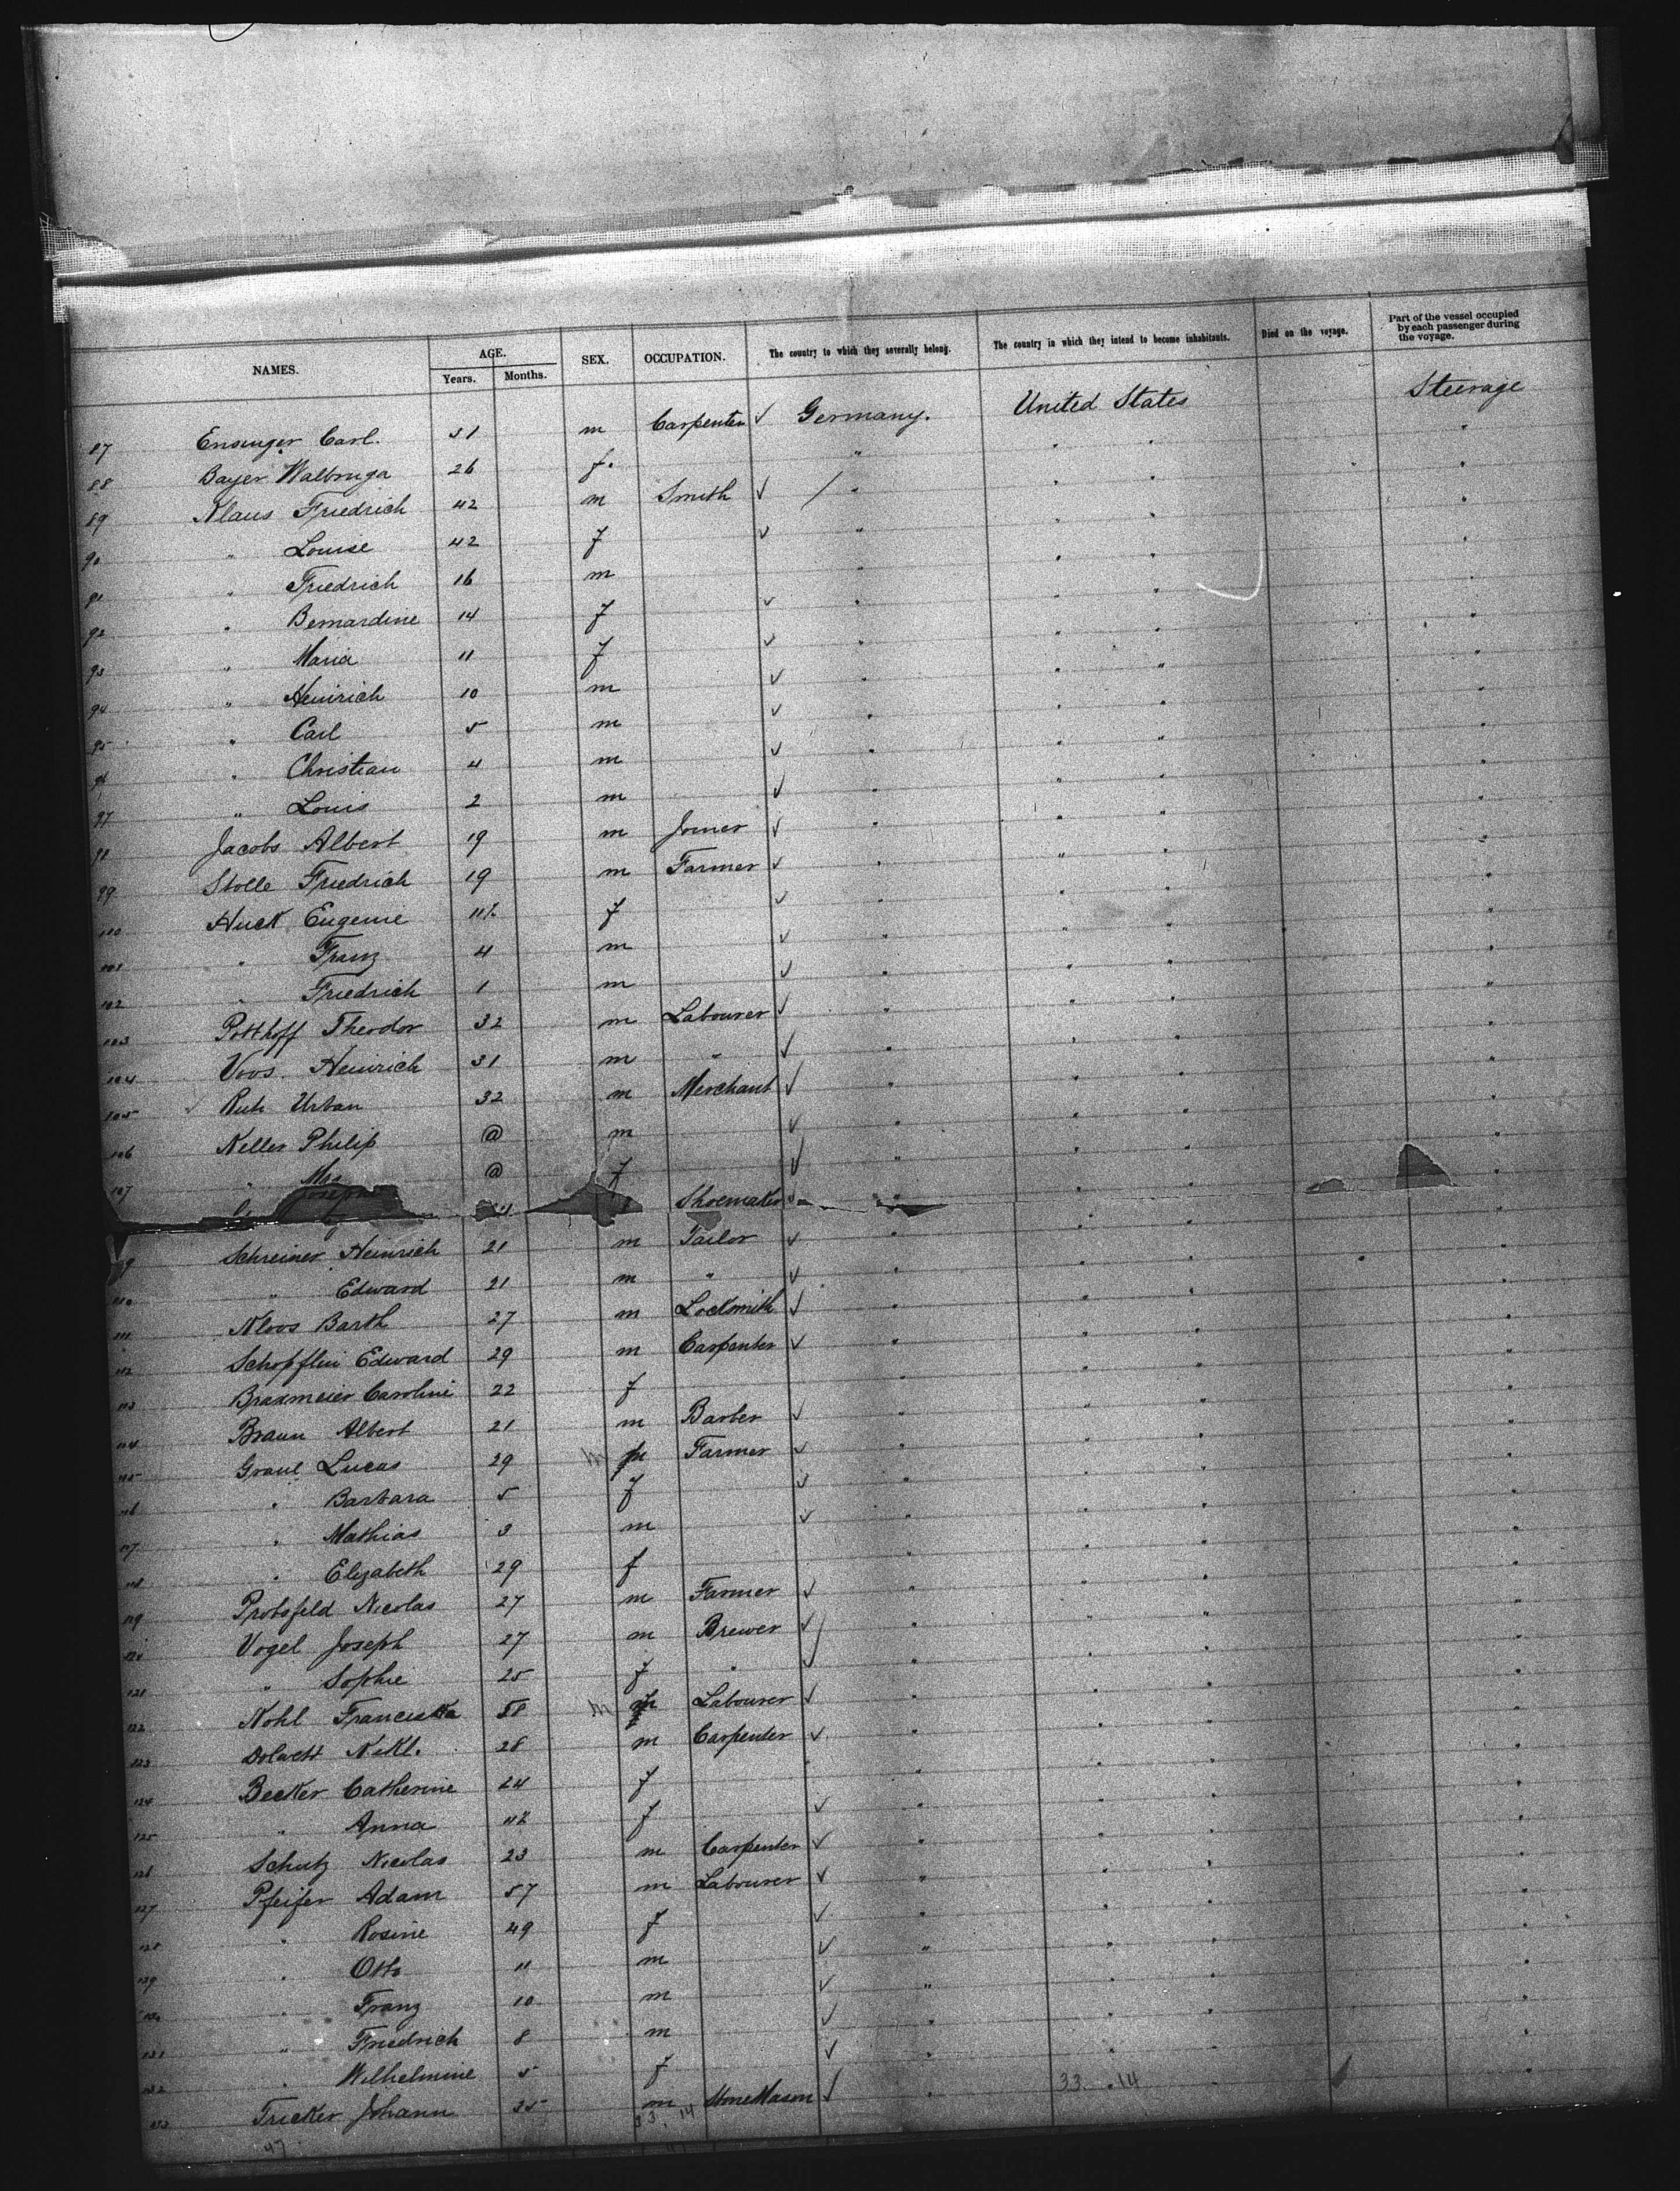 NAMES. AGE. Years. Months. SEX. OCCUPATION. The country to which they severally belong. The country in which they intend to become inhabitants. Died on the voyage. Part of the vessel occupied by each passenger during the voyage.
87 Ensinger Carl. 31 m Carpenter Germany. United States Steerage
88 Bayer Walbruga 26 f. "
89 Klaus Friedrich 42 m Smith "
90 " Louise 42 f "
91 " Friedrich 16 m "
92 " Bernardine 14 f "
93 " Maria 11 f "
94 " Heinrich 10 m "
95 " Carl 5 m "
96 " Christian 4 m "
97 " Louis 2 m "
98 Jacobs Albert 19 m Joiner "
99 Stolle Friedrich 19 m Farmer "
100 Huck Eugenie f "
101 " Franz 4 m "
102 " Friedrich 1 m "
103 Potthoff Theodor 32 m Labourer "
104 Voos Heinrich 31 m " "
105 Ruh Urban 32 m Merchant "
106 Keller Philip @ m "
107 " Mrs @ f "
Joseph Shoemaker "
9 Schreiner Heinrich 21 m Tailor "
110 " Edward 21 m " "
111 Kloos Barth 27 m Locksmith "
112 Schopflin Edward 29 m Carpenter "
113 Braxmeier Caroline 22 f "
114 Braun Albert 21 m Barber "
115 Graul Lucas 29 m m Farmer "
116 " Barbara 5 f "
117 " Mathias 3 m "
118 " Elizabeth 29 f "
119 Probsfeld Nicolas 27 m Farmer "
120 Vogel Joseph 27 m Brewer "
121 " Sophie 25 f " "
122 Kohl Franciska 58 m Labourer "
123 Nikl. 28 m Carpenter "
124 Becker Catherine 24 f "
125 " Anna f "
126 Schutz Nicolas 23 m Carpenter "
127 Pfeifer Adam 57 m Labourer "
128 " Rosine 49 f "
129 " Otto 11 m "
130 " Franz 10 m "
131 " Friedrich 8 m "
132 " Wilhelmine 5 f "
133 Tricker Johann 35 m Stone Mason "
47 33. 14 33. 14